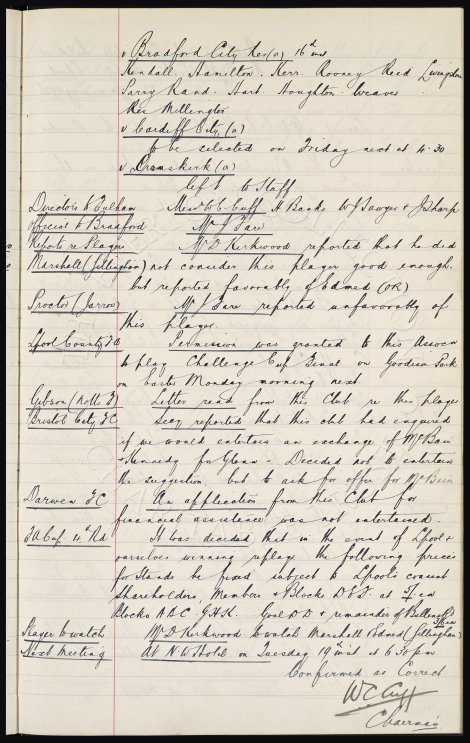 v Bradford City Res (a) 16th inst
Kendall. Hamilton. Kerr. Rooney Reed Livingstone
Parry Rand. Hart. Houghton. Weaver
Res Millington
v Cardiff City (a)
To be selected on Friday next at 4.30
v Ormskirk (a)
left to Staff.
Directors to Fulham Messrs W.C. Cuff, H Banks W J Sawyer & J Sharp
Official to Bradford Mr J Fare
Reports re Players Mr D. Kirkwood reported that he did
Marshall (Gillingham) not consider this player good enough.
but reported favorably of Edmed (OR)
Proctor (Jarrow) Mr J Fare reported unfavourably of
this player.
Lpool County FA Permission was granted to this Assocn
to play Challenge Cup Final on Goodison Park
on Easter Monday morning next
Gibson (Notts F) Letter read from this Club re this player
Bristol City FC Secy reported that this club had enquired
if we would entertain an exchange of McBain
& Kennedy for Glenn - Decided not to entertain
the suggestion but to ask for offer for McBain
Darwen FC An application from this Club for
financial assistance was not entertained.
FA Cup. 4th Rd It was decided that in the event of Lpool &
ourselves winning replays the following prices
for Stands be fixed subject to Lpool's consent
Shareholders, Members & Blocks D E F. at 5/- ea
Blocks A B C G H K. Goal D D & remainder of Bullens Rd 3/6 ea
Player to watch Mr D Kirkwood to watch Marshall & Edmed (Gillingham)
Next Meeting At N.W. Hotel on Tuesday 19th inst at 6.30 pm
Confirmed as Correct
W C Cuff
Chairman.